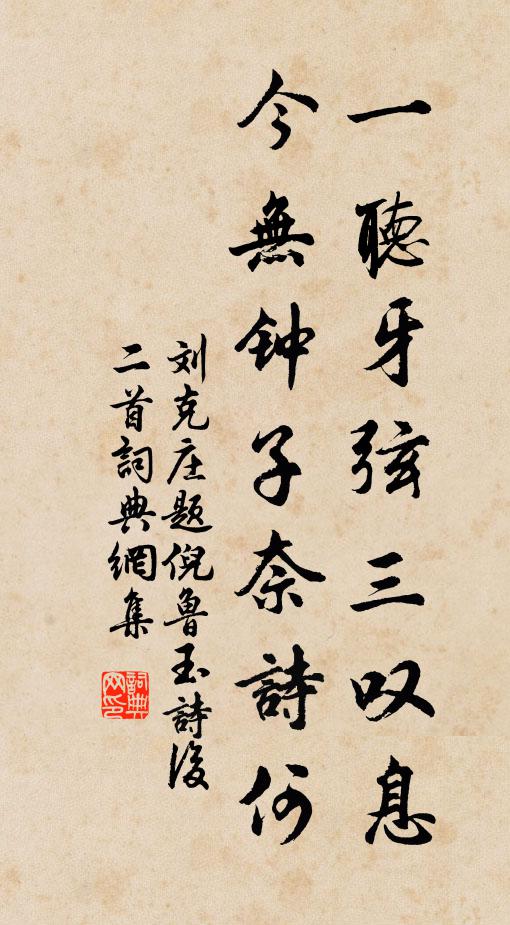 一聽牙弦三叹息
今無钟子奈詩何
刘克庄题倪魯玉詩後
二首詞典網集
詞典
网印